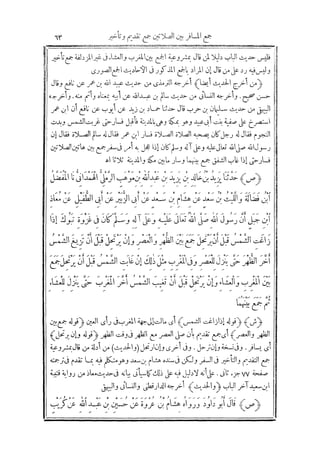 جمع المسافر بين الصلاتين جمع تقديم وتأخير ٦٣
فليس حديث الباب دليلا لمن قال بمشروعية الجمع بين المغرب والعشاء فى غير المزدلفة جمع تأخير
وليس فيه رد على من قال إن المراد بالجمع المذكور فى الأحاديث الجمع الصورى
﴿من أخرج الحديث أيضا﴾ أخرجه الترمذى من حديث عبيد الله بن عمر عن نافع وقال
حسن صحيح. وأخرجه النسائى من حديث سالم بن عبد الله عن أبيه بمعناه وأتم منه. وأخرجه
البيهقى من حديث سليمان بن حرب قال حدثنا حماد بن زيد عن أيوب عن نافع أن ابن عمر
استصرخ على صفية بنت أبى عبيد وهو بمكة وهى بالمدينة فأقبل فسار حتى غربت الشمس وبدت
النجوم فقال له رجل كان يصحبه الصلاة الصلاة فسار ابن عمر فقال له سالم الصلاة فقال إن
رسول الله صلى الله تعالى عليه وعلى آله وسلم كان إذا عجل به أمر فى سفر جمع بين هاتين الصلاتين
فسار حتى إذا غاب الشفق جمع بينهما وسار ما بين مكة والمدينة ثلاثا اه
﴿ص﴾ حَدَّثَنَا يَزِيدُ بْنُ خَالِدِ بْنِ يَزِيدَ بْنِ عَبْدِ اللهِ بْنِ مَوْهَبٍ الرَّمْلِىُّ الْهَمْدَانِىُّ نَا الْمُفَضَّلُ
ابْنُ فَضَالَةَ وَاللَّيْثُ بْنُ سَعْدٍ عَنْ هِشَامِ بْنِ سَعْدٍ عَنْ أَبِى الزُّبَيْرِ عَنْ أَبِى الطُّفَيْلِ عَنْ مُعَاذِ
ابْنِ جَبَلٍ أَنَّ رَسُولَ اللهِ صَلَّى اللهُ تَعَالَى عَلَيْهِ وَعَلَى آلِهِ وَسَلَّمَ كَانَ فِى غَزْوَةِ تَبُوكَ إِذَا
زَاغَتِ الشَّمْسُ قَبْلَ أَنْ يَرْتَحِلَ جَمَعَ بَيْنَ الظُّهْرِ وَالْعَصْرِ وَإِنْ يَرْتَحِلْ قَبْلَ أَنْ تَزِيغَ الشَّمْسُ
أَخَّرَ الظُّهْرَ حَتَّى يَنْزِلَ لِلْعَصْرِ وَفِى الْمَغْرِبِ مِثْلَ ذَلِكَ إِنْ غَابَتِ الشَّمْسُ قَبْلَ أَنْ يَرْتَحِلَ جَمَعَ
بَيْنَ الْمَغْرِبِ وَالْعِشَاءِ وَإِنْ يَرْتَحِلْ قَبْلَ أَنْ تَغِيبَ الشَّمْسُ أَخَّرَ الْمَغْرِبَ حَتَّى يَنْزِلَ لِلْعِشَاءِ
ثُمَّ جَمَعَ بَيْنَهُمَا
﴿ش﴾ ﴿قوله إذا زاغت الشمس﴾ أى مالت إلى جهة المغرب فى رأى العين ﴿قوله جمع بين
الظهر والعصر﴾ أى جمع تقديم بأن صلى العصر مع الظهر فى وقت الظهر ﴿قوله وإن يرتحل﴾
أى يسافر. وفى نسخة وإن ترحل. وفى أخرى وإن ارتحل ﴿والحديث﴾ من أدلة من قال بمشروعية
جمع التقديم والتأخير فى السفر ولكن فى سنده هشام بن سعد وهو متكلم فيه بما تقدم فى ترجمته
صفحة ٧٧ جزء ثانى. على أنه لا دليل فيه على ذلك كما سيأتى بيانه فى حديث معاذ من رواية قتيبة
ابن سعيد آخر الباب ﴿والحديث﴾ أخرجه الدارقطنى والنسائى والبيهقى
﴿ص﴾ قَالَ أَبُو دَاوُدَ وَرَوَاهُ هِشَامُ بْنُ عُرْوَةَ عَنْ حُسَيْنِ بْنِ عَبْدِ اللهِ عَنْ كُرَيْبٍ